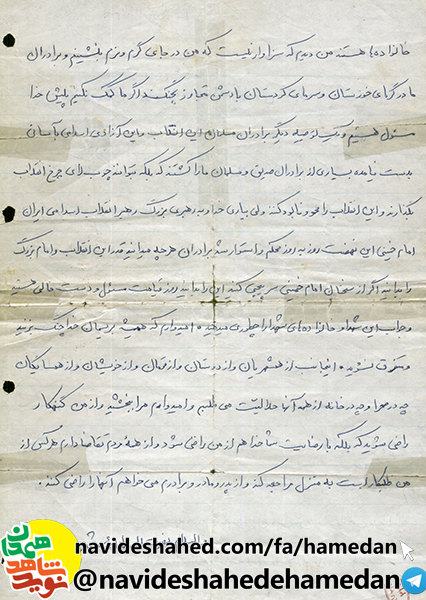 خانواده ها هستند من دیدم که سزاوار نیست که من در جای گرم و نرم بنشینم و برادران
ما در گرمای خوزستان و سرمای کردستان با دشمن متجاوز بجنگند اگر ما کمک نکنیم پیش خدا
مسئول هستیم و یک توصیه دیگر برادران مسلمان این انقلاب و این آزادی اسلامی بآسانی
بدست نیامده بسیاری از برادران صدیق و مسلمان ما را کشتند که بلکه بتوانند چوب لای چرخ انقلاب
بگذارند و این انقلاب را محو و نابود کنند ولی بیاری خدا و به رهبری بزرگ رهبر انقلاب اسلامی ایران
امام خمینی این نهضت روز به روز محکم و استوار شد برادران هر چه میتوانید قدر این انقلاب و امام بزرگ
را بدانید اگر از سخنان امام خمینی سرپیچی کنید این را بدانید روز قیامت مسئول و دست خالی هستید
و جواب این شهدا و خانواده های شهدا را چطوری میدهید امیدوارم که همیشه بریسمان خدا چنگ بزنید
و متفرق نشوید اینجانب از همشهریان و از دوستان و از فامیلان و از خویشان و از همسایگان
چه در صحرا و چه در خانه از همه آنها حلالیت می طلبم و امیدوارم مرا ببخشید و از من گنهکار
راضی شوید که بلکه با رضایت شما خدا هم از من راضی شود و از همه مردم تقاضا دارم هر کس از
من طلبکار است به منزل مراجعه کند و از پدر و مادر و برادرم می خواهم آنها را راضی کنند.
navideshahed.com/fa/hamedan
@navideshahedehamedan
نوید شاهد
همدان